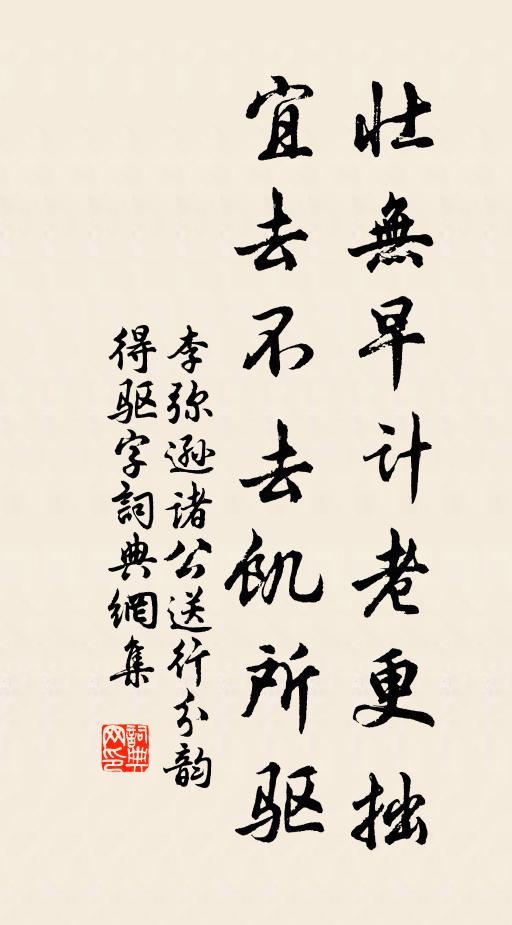 壮無早计老更拙
宜去不去飢所驱
李弥遜诸公送行分韵
得驱字詞典網集
詞典
网印